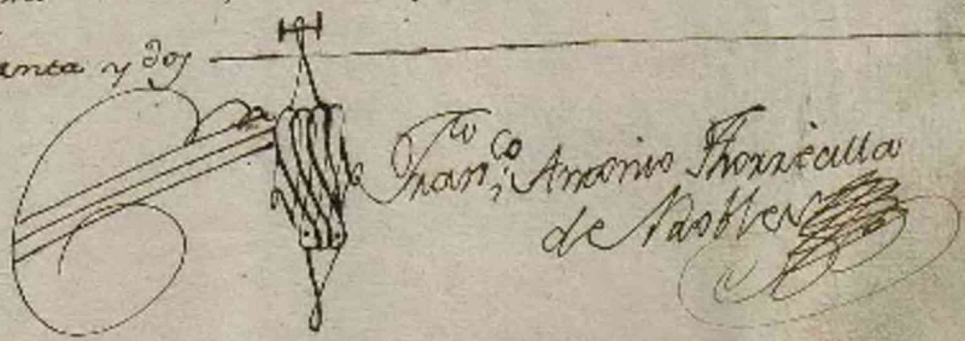 anta y dos
Fran.co Antonio Thorrecilla
de Robles